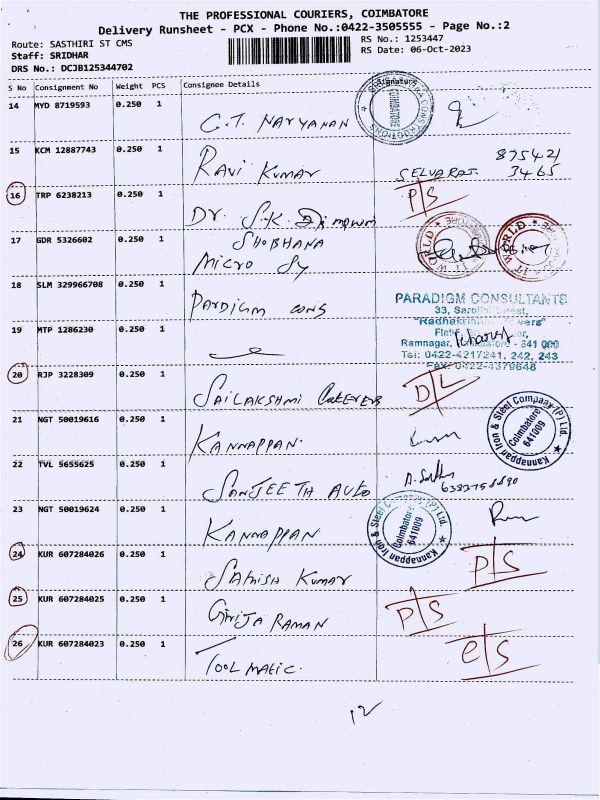 THE PROFESSIONAL COURIERS, COIMBATORE
Delivery Runsheet - PCX - Phone No.:0422-3505555 - Page No.:2
Route: SASTHIRI ST CMS
RS No.: 1253447
Staff: SRIDHAR
RS Date: 06-Oct-2023
DRS No.: DCJB125344702
S No Consignment No Weight PCS Consignee Details Signature
14 MYD 8719593 0.250 1
G.T. NARYANAN
COIMBATORE
15 KCM 12887743 0.250 1
RAVI KUMAR
SELVARAJ. 875421
3465
16 TRP 6238213 0.250 1
P/S
DR. S.K.
17 GDR 5326602 0.250 1
SHOBHANA
MICRO Sy
IT WORLD
IT WORLD
18 SLM 329966708 0.250 1
PARDIGM CONS
PARADIGM CONSULTANTS
33, Street,
"Radhakrishna Towers"
Ramnagar, Coimbatore - 641 009
Tel: 0422-4217241, 242, 243
FAX: 0422-4379648
19 MTP 1286230 0.250 1
20 RJP 3228309 0.250 1
SAILAKSHMI CATERERS
D/L
21 NGT 50019616 0.250 1
KANNAPPAN.
Kannappan Iron & Steel Company (P) Ltd.
Coimbatore
641009
22 TVL 5655625 0.250 1
SANJEETH AUTO
23 NGT 50019624 0.250 1
KANNAPPAN
Kannappan Iron & Steel Company (P) Ltd.
Coimbatore
641009
24 KUR 607284026 0.250 1
SATHISH KUMAR
P/S
25 KUR 607284025 0.250 1
GIRIJA RAMAN
P/S
26 KUR 607284023 0.250 1
TOOL MATIC.
e/s
12